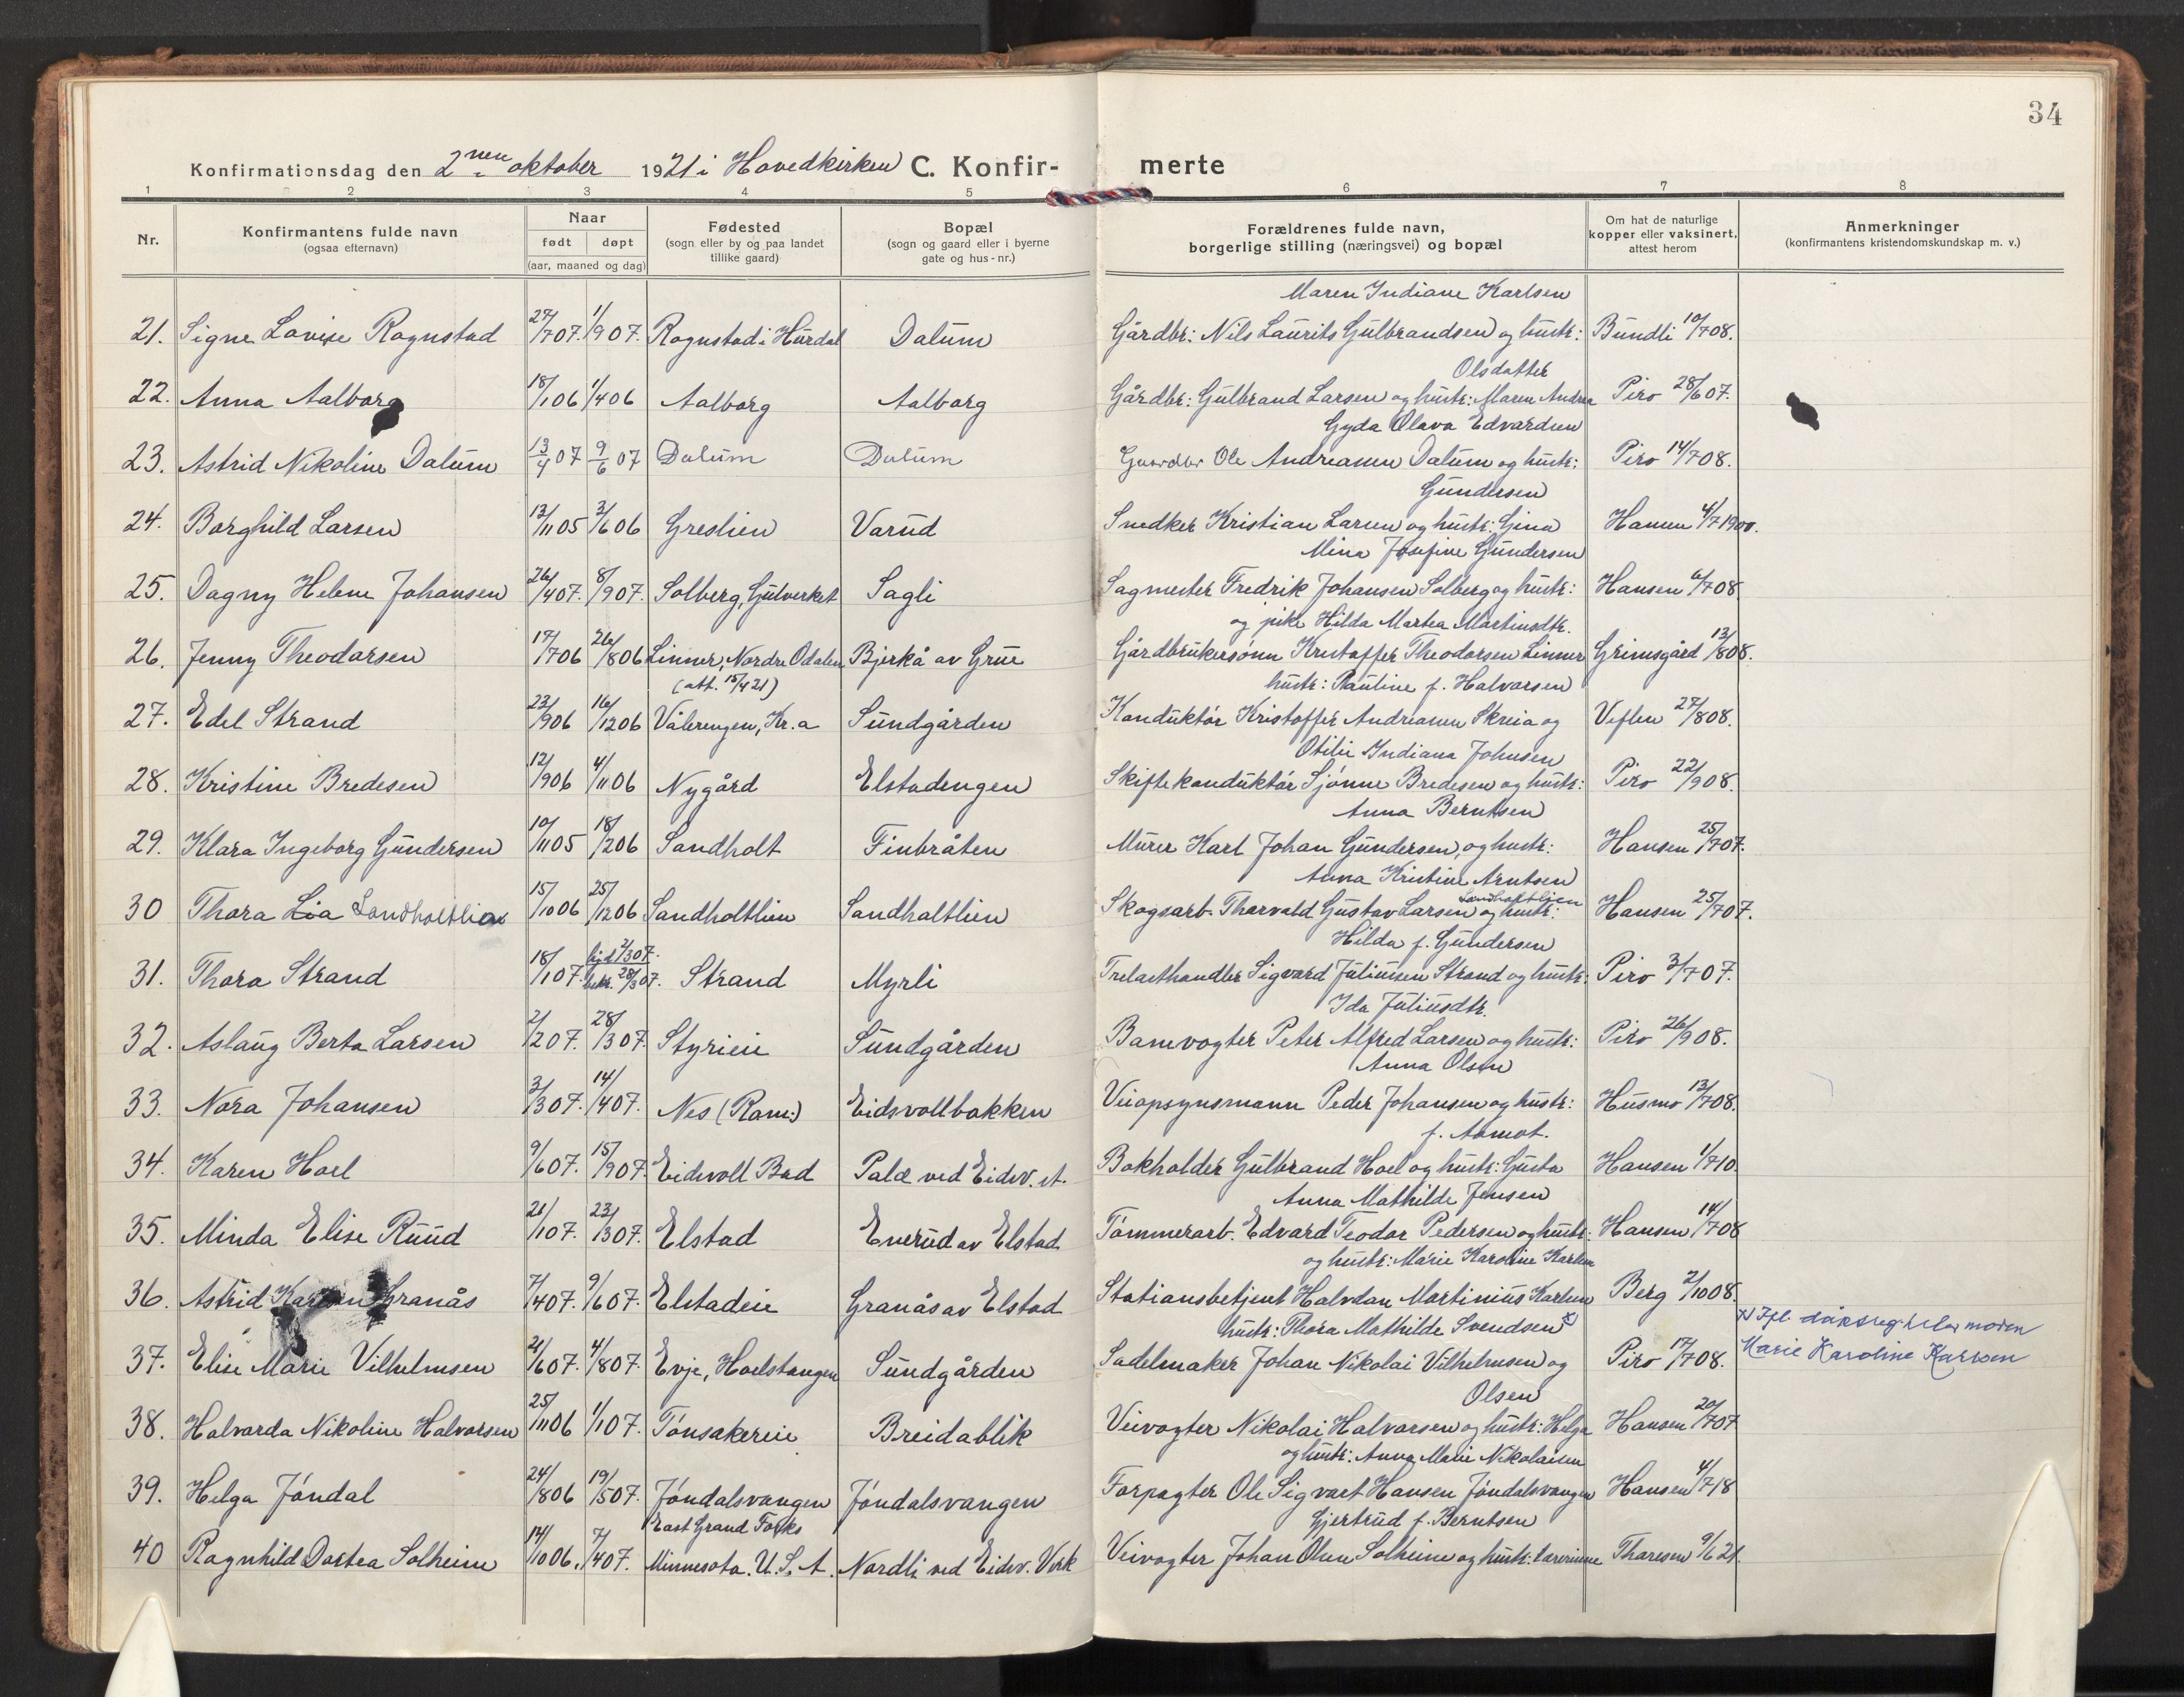 34
Konfirmationsdag den 2nen oktober 1921 i Hovedkirken C. Konfirmerte
1 2 3 4 5 6 7 8
Nr.
Konfirmantens fulde navn
(ogsaa efternavn)
Naar
født døpt
(aar, maaned og dag)
Fødested
(sogn eller by og paa landet
tillike gaard)
Bopæl
(sogn og gaard eller i byerne
gate og hus-nr.)
Forældrenes fulde navn,
borgerlige stilling (næringsvei) og bopæl
Om hat de naturlige
kopper eller vaksinert,
attest herom
Anmerkninger
(konfirmantens kristendomskundskap m. v.)
Maren Indiane Karlsen
21. Signe Lovise Rognstad 27/7 07. 1/9 07. Rognstad i Hurdal Dalum Gårdbr: Nils Laurits Gulbrandsen og hustr: Bundli 10/7 08.
Olsdatter
22. Anna Aalborg 18/1 06 1/4 06 Aalborg Aalborg Gårdbr: Gulbrand Larsen og hustr: Maren Andrea Piro 28/6 07.
Gyda Olava Edvardsen
23. Astrid Nikoline Dalum 13/4 07 9/6 07 Dalum Dalum Gaardbr Ole Andreasen Dalum og hustr: Piro 14/7 08.
Gundersen
24. Borghild Larsen 13/11 05 3/6 06 Greslien Varud Snedker Kristian Larsen og hustr: Gina Hansen 4/7 1900.
Mina Josefine Gundersen
25. Dagny Helene Johansen 26/4 07. 8/9 07. Solberg, Gulverket Sagli Sagmester Fredrik Johansen Solberg og hustr: Hansen 6/7 08
og pike Hilda Martea Martinsdtr.
26. Jenny Theodorsen 17/7 06 26/8 06 Linner, Nordre Odalen Bjerkå av Grue Gårdbrukersønn Kristoffer Theodorsen Linner Grimsgård 13/8 08.
(att. 15/4 21) hustr: Pauline f. Halvorsen
27. Edel Strand 23/9 06 16/12 06 Vålerengen, Kr.a Sundgården Konduktør Kristoffer Andreasen Skreia og Veflen 27/8 08.
Otilie Indiana Johnsen
28. Kristine Bredesen 12/9 06 4/11 06 Nygård Elstadengen Skiftekonduktør Sjønne Bredesen og hustr: Piro 22/9 08.
Anna Berntsen
29. Klara Ingeborg Gundersen 10/11 05 18/2 06 Sandholt Finbråten Murer Karl Johan Gundersen, og hustr: Hansen 25/7 07.
Anna Kristine Arntsen
Sandholtlien
30 Thora Lia Sandholtlien 15/10 06 25/12 06 Sandholtlien Sandholtlien Skogsarb. Thorvald Gustav Larsen og hustr: Hansen 25/7 07.
Hilda f. Gundersen
31. Thora Strand 18/1 07. hjd 2/3 07. bekr. 28/3 07. Strand Myrli Trelasthandler Sigvard Juliussen Strand og hustr: Piro 3/7 07.
Ida Juliusdtr.
32. Aslaug Berta Larsen 2/2 07. 28/3 07. Styrieie Sundgården Banevogter Peter Alfred Larsen og hustr: Piro 26/9 08.
Anna Olsen
33. Nora Johansen 3/3 07. 14/4 07. Nes (Rom:) Eidsvollbakken Veiopsynsmann Peder Johansen og hustr: Husmo 13/7 08.
f. Aamot.
34. Karen Hoel 9/6 07. 15/9 07. Eidsvoll Bad Palæ ved Eidsv. st. Bokholder Gulbrand Hoel og hustr: Gusta Hansen 1/7 10
Anna Mathilde Jensen
35. Minda Elise Ruud 21/1 07. 23/3 07. Elstad Enerud av Elstad Tømmerarb. Edvard Teodor Pedersen og hustr: Hansen 14/7 08
og hustr: Marie Karoline Karlsen
36. Astrid Karlsen Granås 7/4 07. 9/6 07. Elstadeie Granås av Elstad Stationsbetjent Halvdan Martinius Karlsen Berg 2/10 08.
hustr: Thora Mathilde Svendsen x)
37. Elise Marie Vilhelmsen 21/6 07. 4/8 07. Evje, Hoelstangen Sundgården Sadelmaker Johan Nikolai Vilhelmsen og Piro 17/7 08.
x) Ifl. dåpsreg. heter moren
Marie Karoline Karlsen
Olsen
38. Halvarda Nikoline Halvorsen 25/11 06 1/1 07. Tønsakereie Breidablik Veivogter Nikolai Halvorsen og hustr: Helga Hansen 20/7 07
og hustr: Anna Marie Nikolaisen
39. Helga Jøndal 24/8 06 19/5 07. Jøndalsvangen Jøndalsvangen Forpagter Ole Sigvart Hansen Jøndalsvangen Hansen 4/7 18
East Grand Forks Gjertrud f. Berntsen
40 Ragnhild Dortea Solheim 14/10 06. 7/4 07. Minnesota. U.S.A. Nordli ved Eidsv. Verk Veivogter Johan Olsen Solheim og hustr: lærerinne Thoresen 9/6 21.